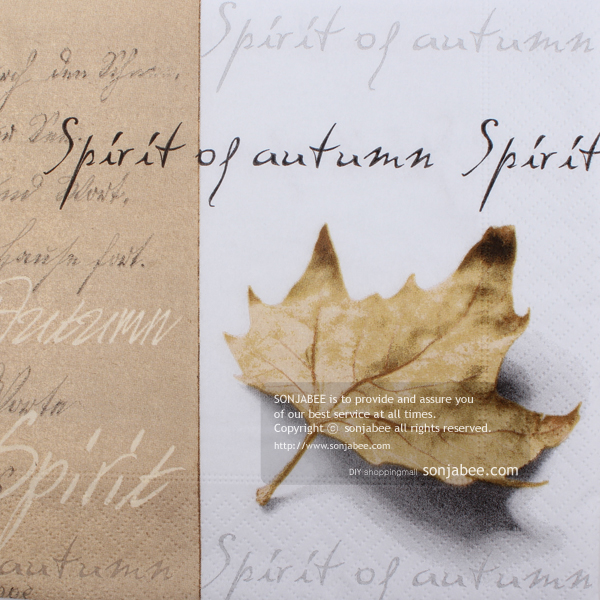 Spirit of autumn
den
Spirit of autumn Spirit
und Wort.
hause fort.
Autumn
Worte
SONJABEE is to provide and assure you
of our best service at all times.
Copyright ⓒ sonjabee all rights reserved.
http://www.sonjabee.com
Spirit
DIY shoppingmall sonjabee.com
autumn Spirit of autumn